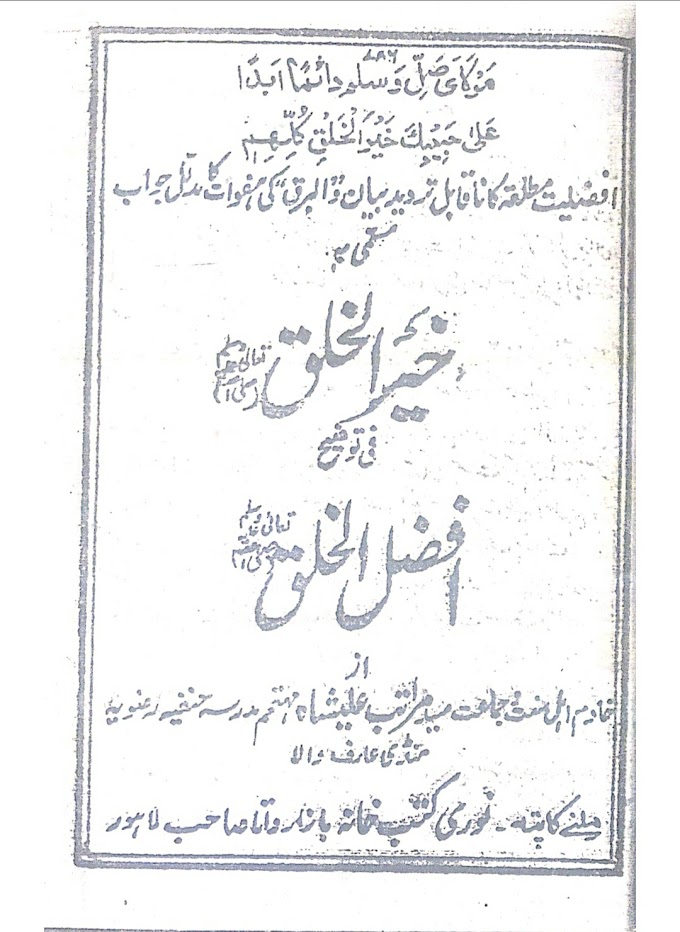 ۷۸۶
مَوْلَایَ صَلِّ وَسَلِّمْ دَائِمًا اَبَدًا
عَلٰی حَبِیْبِکَ خَیْرِ الْخَلْقِ کُلِّہِمِ
افضلیت مطلقہ کا ناقابل تردید بیان "والبرق" کی ہفوات کا مدلل جواب
مسمّٰی بہ
خَیْرُ الخلق
(صلی اللہ تعالیٰ علیہ وسلم)
فی توضیح
افضل الخلق
(صلی اللہ تعالیٰ علیہ وسلم)
از
خادم اہل سنت و جماعت سید مراتب علیشاہ مہتمم مدرسہ حنفیہ رضویہ
منڈی عارف والا
ملنے کا پتہ۔ نوری کتب خانہ بازار داتا صاحب لاہور